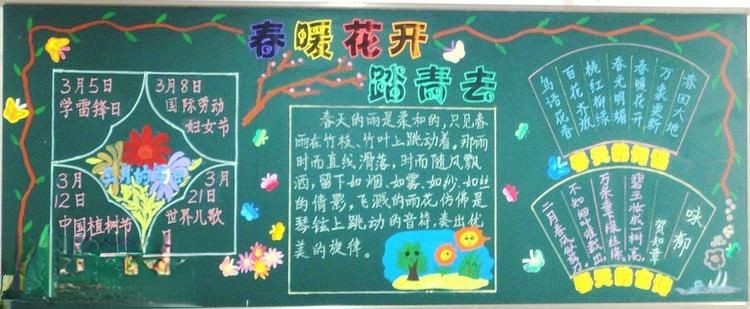 春暖花开
踏青去
3月5日
学雷锋日
3月8日
国际劳动
妇女节
三月的节日
3月
12日
中国植树节
3月
21日
世界儿歌
日
春天的雨是柔和的,只见春
雨在竹枝、竹叶上跳动着。那雨
时而直线滑落,时而随风飘
洒,留下如烟、如雾、如纱、如丝
的倩影,飞溅的雨花仿佛是
琴弦上跳动的音符,奏出优
美的旋律。
春回大地
万象更新
春暖花开
春光明媚
桃红柳绿
百花齐放
鸟语花香
春天的词语
咏柳
贺知章
碧玉妆成一树高,
万条垂下绿丝绦。
不知细叶谁裁出,
二月春风似剪刀。
春天的古诗